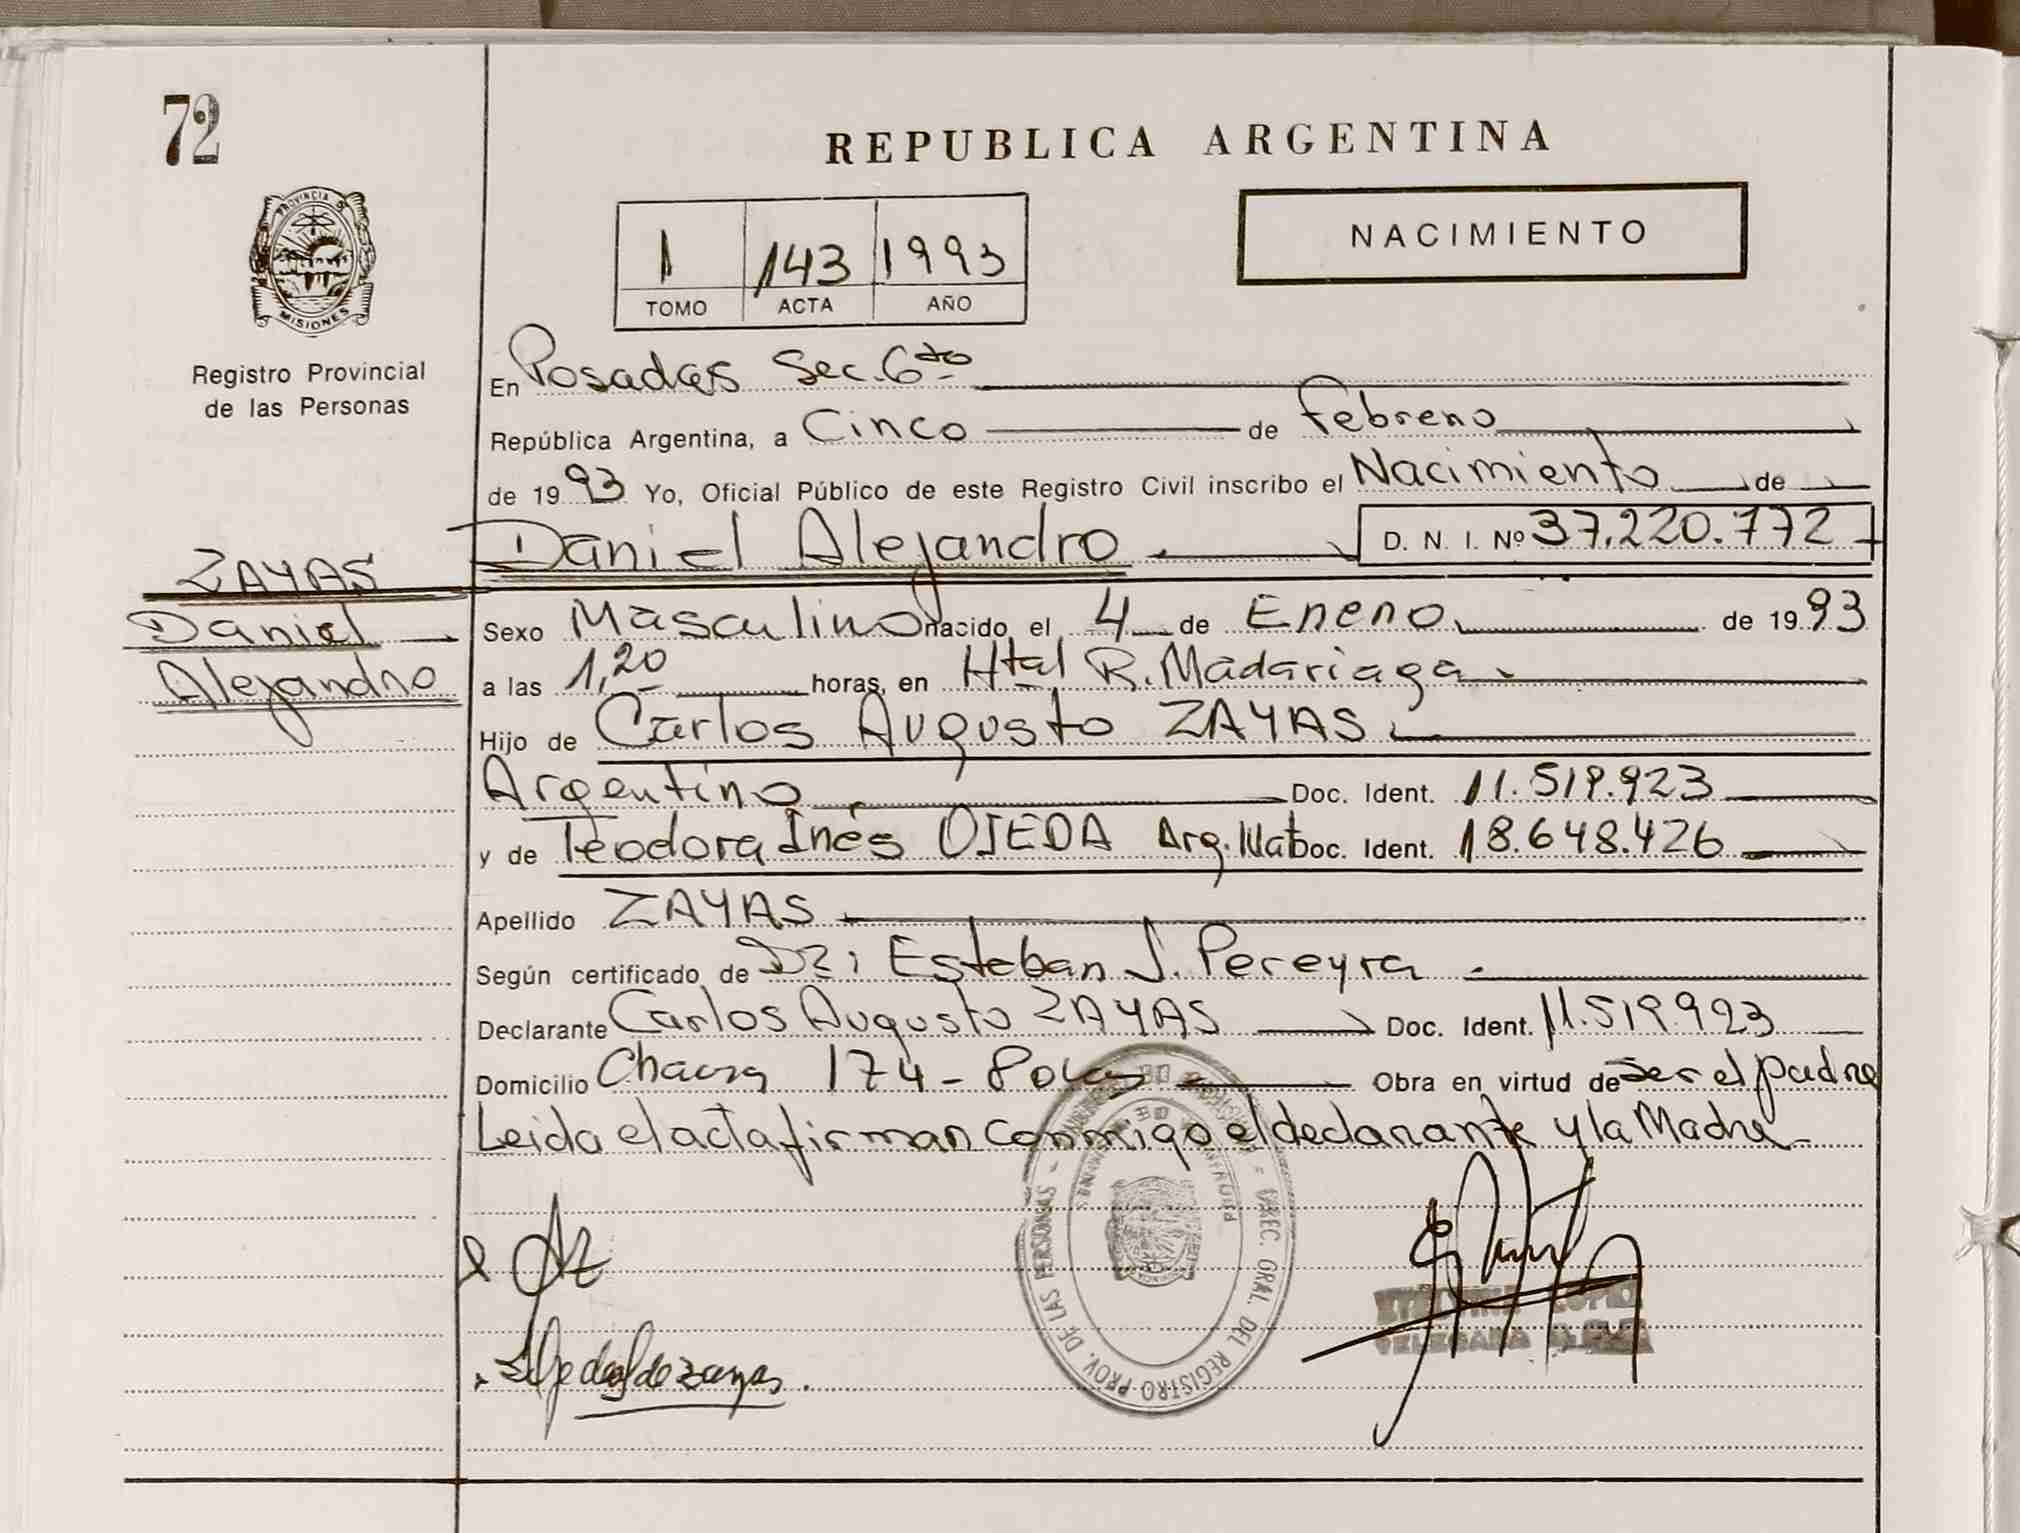 72
REPUBLICA ARGENTINA
PROVINCIA DE
MISIONES
Registro Provincial
de las Personas
1 143 1993
TOMO ACTA AÑO
NACIMIENTO
En Posadas Sec. 6to
República Argentina, a Cinco de Febrero
de 1993 Yo, Oficial Público de este Registro Civil inscribo el Nacimiento de
Daniel Alejandro D. N. I. Nº 37.220.772
ZAYAS
Daniel
Alejandro
Sexo Masculino nacido el 4 de Enero de 1993
a las 1,20 horas, en Htal R. Madariaga
Hijo de Carlos Augusto ZAYAS
Argentino Doc. Ident. 11.519.923
y de Teodora Inés OJEDA Arg. Nat Doc. Ident. 18.648.426
Apellido ZAYAS
Según certificado de Dr: Esteban J. Pereyra
Declarante Carlos Augusto ZAYAS Doc. Ident. 11.519.923
Domicilio Chacra 174 - Pdas Obra en virtud de ser el padre
Leida el acta firman conmigo el declarante y la Madre
DIREC. GRAL. DEL REGISTRO PROV. DE LAS PERSONAS
PROVINCIA DE MISIONES
de zayas